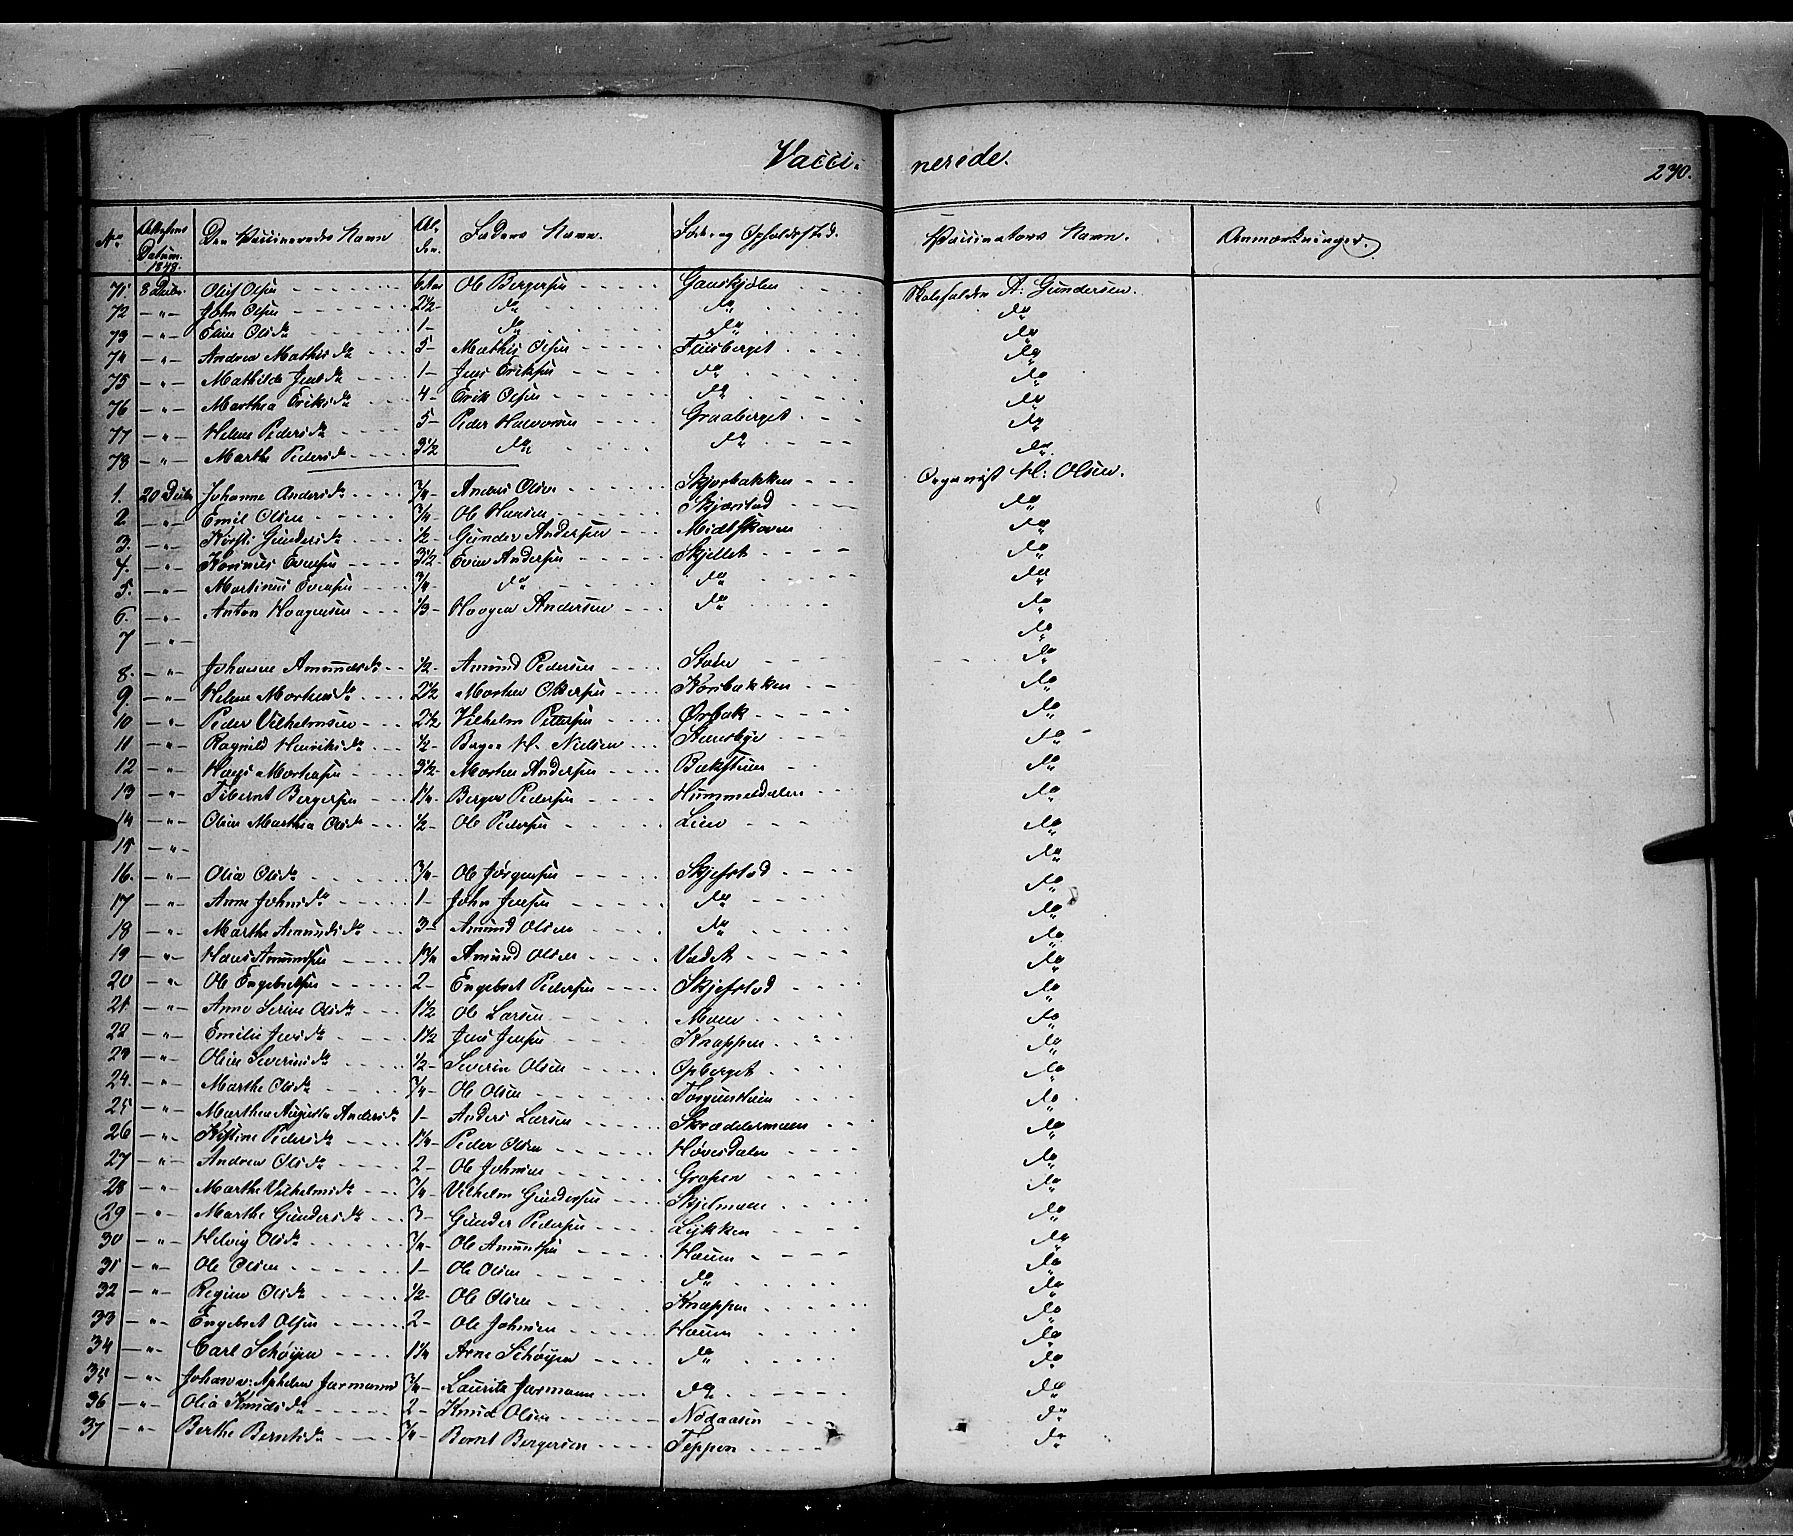 Vacci- nerede.
270.
No Attestens Datum. 1848. Den Vaccineredes Navn Al-der. Faders Navn. Føde- og Opholdssted. Vaccinators Navn. Anmærkninger.
71. 8 Decbr Oluf Olsen 6 Aar Ole Bergersen Gauskjølen Skoleholder A: Gundersen.
72 -"- John Olsen 2½ do do do
73 -"- Eline Olsdr 1- do do do
74 -"- Andrea Mathisdr 5- Mathis Olsen Fiisberget do
75 -"- Mathilde Jensdr 1- Jens Eriksen do do
76 -"- Marthea Eriksdr 4- Erik Olsen do do
77 -"- Helene Pedersdr 5- Peder Halvorsen Graaberget do
78 -"- Marthe Pedersdr 3½ do do do
1. 20 Decbr Johanne Andersdr ¾- Anders Olsen Skjorbakken Organist H: Olsen.
2 -"- Emil Olsen ¾- Ole Hansen Skjærstad do
3. -"- Kirsti Gundersdr ½- Gunder Andersen Midtskoven do
4. -"- Kornelis Evensen 3½ Even Andersen Skjellet do
5. -"- Martinus Evensen ¾ do do do
6. -"- Anton Haagensen ⅓- Haagen Andersen do do
7 -"- do
8. -"- Johanne Amundsdr ½- Amund Pedersen Støen do
9. -"- Helene Mortensdr 2½ Morten Ottersen Korsbakken do
10 -"- Peder Vilhelmsen 2½ Vilhelm Pettersen Ørbæk do
11 -"- Ragnild Henriksdr ½- Berger H. Nielsen Steensbye do
12 -"- Hans Mortensen 3½ Morten Andersen Bækstuen do
13 -"- Tibernt Bergersen 1¼- Berger Pedersen Hummeldalen do
14 -"- Oline Marthia Olsdr ½- Ole Pedersen Lien do
15 -"- do
16. -"- Olia Olsdr ¾- Ole Jørgensen Skjefstad do
17 -"- Anne Johnsdr 1- John Jensen do do
18 -"- Marthe Amundsdr 3- Amund Olsen do do
19 -"- Hans Amundsen 1¾ Amund Olsen Vadet do
20 -"- Ole Engebretsen 2- Engebret Pedersen Skjefstad do
21 -"- Anne Serine Olsdr 1½ Ole Larsen Moen do
22 -"- Emilie Jensdr 1½ Jens Jensen Knappen do
23 -"- Oline Severinsdr ½- Severin Olsen Opberget do
24. -"- Marthe Olsdr ¾- Ole Olsen Torgunsheim do
25 -"- Marthea Augusta Andersdr 1- Anders Larsen Skræddermoen do
26 -"- Kistine Pedersdr 1¼- Peder Olsen Hovesdalen do
27 -"- Andrea Olsdr 2- Ole Johnsen Grapen do
28 -"- Marthe Vilhelmsdr ¾- Vilhelm Gundersen Skjelmoen do
29 -"- Marthe Gundersdr 3- Gunder Pedersen Lykken do
30 -"- Helvig Olsdr ¾- Ole Amundsen Hauen do
31 -"- Ole Olsen 1- Ole Olsen do do
32 -"- Regine Olsdr ½- Ole Olsen Knappen do
33 -"- Engebret Olsen 2- Ole Johnsen Hauen do
34 -"- Carl Schøyen 1¼ Arne Schøyen do do
35 -"- Johan v: Aphelen Jarmann ¾- Lauritz Jarmann do do
36 -"- Olia Knudsdr 2- Knud Olsen Nodaasen do
37 -"- Berthe Berntsdr ¾- Bernt Bergersen Teppen do